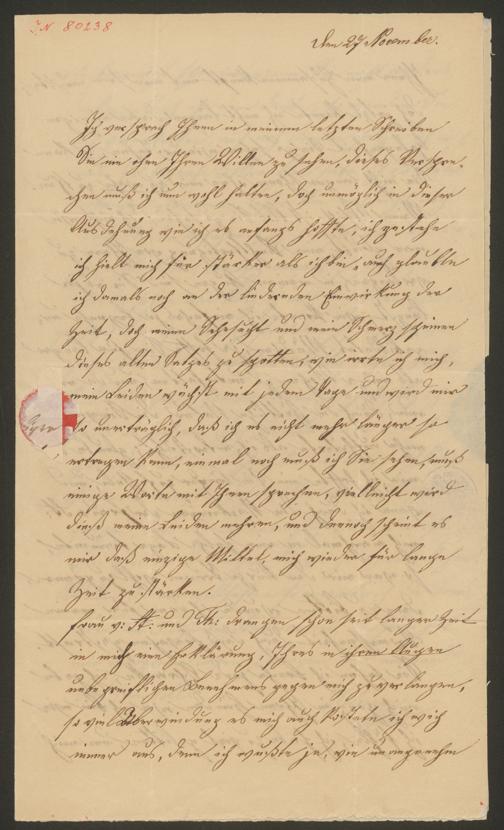 I.N 80238
Den 27 November.
Ich versprach Ihnen in meinem letzten Schreiben
Sie nie ohne Ihren Willen zu sehen, dieses Verspre-
chen muß ich nun wohl halten, doch unmöglich in dieser
Ausdehnung wie ich es anfangs hoffte, ich gestehe
ich hielt mich für stärker als ich bin, auch glaubte
ich damals noch an der lindernden Einwirkung der
Zeit, doch meine Sehnsucht und mein Schmerz scheinen
dieses alten Satzes zu spotten, wie irrte ich mich,
mein Leiden wächst mit jedem Tage und wird mir
so unerträglich, daß ich es nicht mehr länger so
ertragen kann, einmal noch muß ich Sie sehen, muß
einige Worte mit Ihnen sprechen, vielleicht wird
dieß meine Leiden mehren, und dennoch scheint es
mir daß einzige Mittel, mich wieder für lange
Zeit zu stärken.
Frau v: A: und Th: drangen schon seit langer Zeit
in mich eine Erklärung, Ihres in ihren Augen
unbegreiflichen Benehmens gegen mich zu verlangen,
so viel Überwindung es mich auch kostete ich wich
immer aus, denn ich wußte ja, wie unangenehm